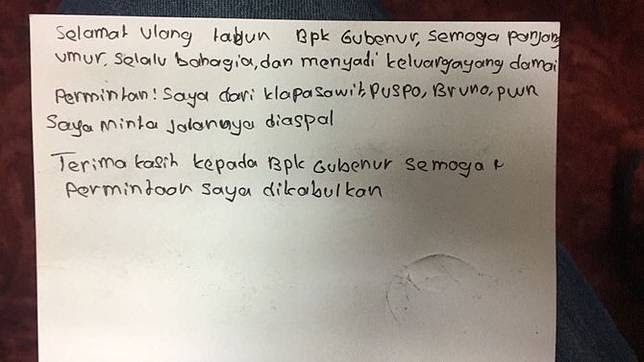 Selamat Ulang tahun Bpk Gubenur, semoga panjang
umur, selalu bahagia, dan menyadi keluargayang damai
Permintan! Saya dari Klapasawit, Puspo, Bruno, pwr
Saya minta Jalannya diaspal
Terima kasih kepada Bpk Gubenur semoga
Permintaan saya dikabulkan